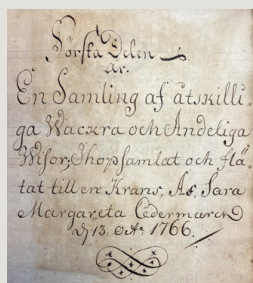 Första Delen
är.
En Samling af åtskilli-
ga Wackra och Andeliga
Wisor; Ihopsamlat och flä-
tat till en Krans, Af, Sara
Margareta Cedermarck
13. 1766.